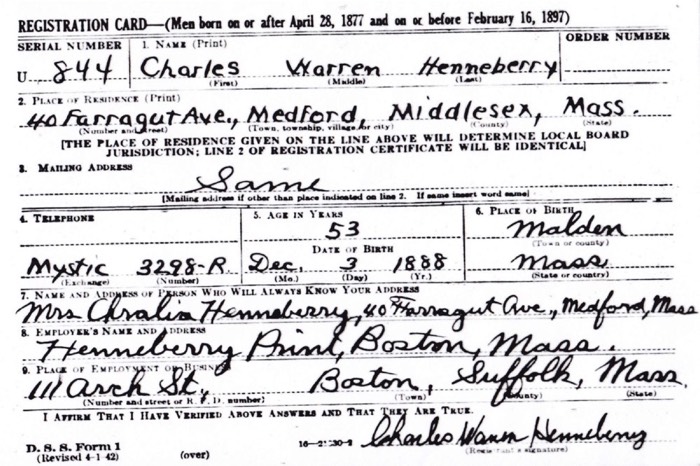 REGISTRATION CARD—(Men born on or after April 28, 1877 and on or before February 16, 1897)
SERIAL NUMBER 1. NAME (Print) ORDER NUMBER
U 844 Charles Warren Henneberry
(First) (Middle) (Last)
2. PLACE OF RESIDENCE (Print)
40 Farragut Ave., Medford, Middlesex, Mass.
(Number and street) (Town, township, village, or city) (County) (State)
[THE PLACE OF RESIDENCE GIVEN ON THE LINE ABOVE WILL DETERMINE LOCAL BOARD
JURISDICTION; LINE 2 OF REGISTRATION CERTIFICATE WILL BE IDENTICAL]
3. MAILING ADDRESS
Same
[Mailing address if other than place indicated on line 2. If same insert word same]
4. TELEPHONE 5. AGE IN YEARS 6. PLACE OF BIRTH
53 Malden
(Town or county)
DATE OF BIRTH
Mystic 3298-R Dec. 3 1888 Mass
(Exchange) (Number) (Mo.) (Day) (Yr.) (State or country)
7. NAME AND ADDRESS OF PERSON WHO WILL ALWAYS KNOW YOUR ADDRESS
Mrs Henneberry, 40 Farragut Ave., Medford, Mass
8. EMPLOYER'S NAME AND ADDRESS
Henneberry Print, Boston, Mass.
9. PLACE OF EMPLOYMENT OR BUSINESS
111 Arch St., Boston, Suffolk, Mass.
(Number and street or R. F. D. number) (Town) (County) (State)
I AFFIRM THAT I HAVE VERIFIED ABOVE ANSWERS AND THAT THEY ARE TRUE.
D. S. S. Form 1 Charles Warren Henneberry
(Revised 4-1-42) (over) (Registrant's signature)